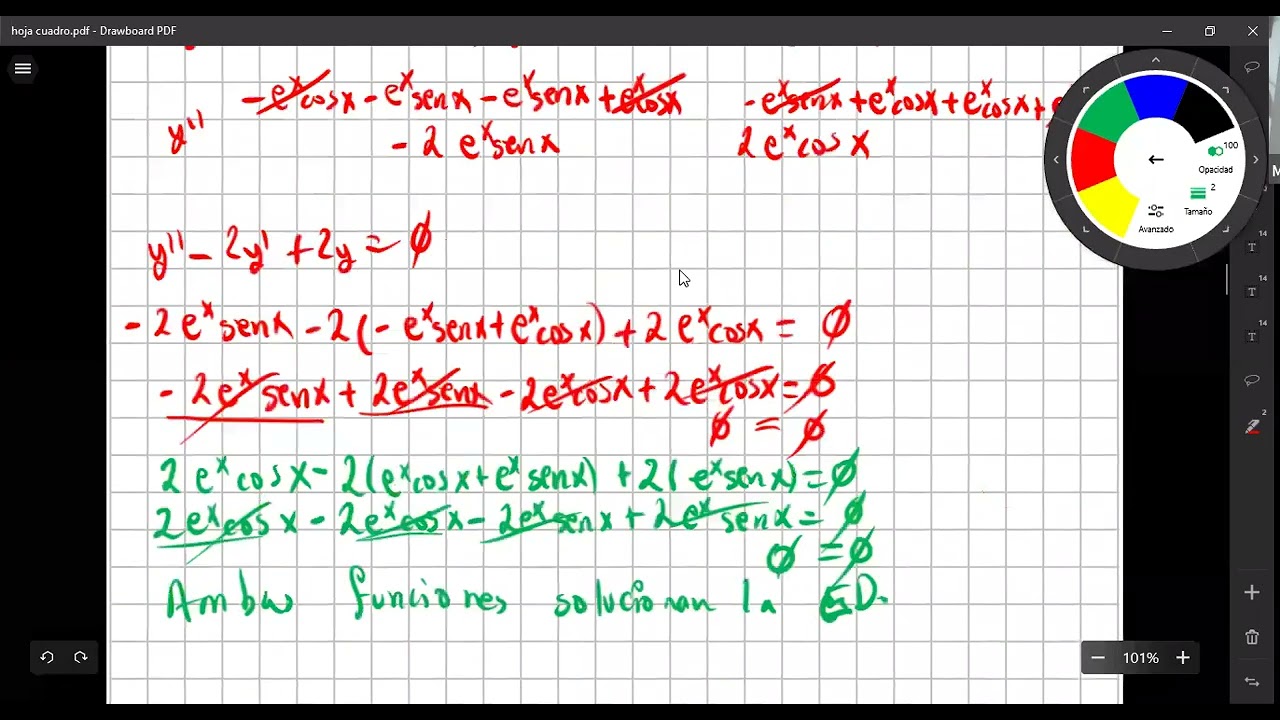 hoja cuadro.pdf - Drawboard PDF
y'' -eˣcosx - eˣsenx - eˣsenx + eˣcosx -eˣsenx + eˣcosx + eˣcosx +
- 2 eˣsenx 2eˣcosx
y'' - 2y' + 2y = 0
- 2eˣsenx - 2(-eˣsenx + eˣcosx) + 2eˣcosx = 0
- 2eˣsenx + 2eˣsenx - 2eˣcosx + 2eˣcosx = 0
0 = 0
2eˣcosx - 2(eˣcosx + eˣsenx) + 2(eˣsenx) = 0
2eˣcosx - 2eˣcosx - 2eˣsenx + 2eˣsenx = 0
0 = 0
Ambas funciones solucionan la ED.
100
Opacidad
2
Tamaño
Avanzado
14
T
14
T
14
T
2
101%